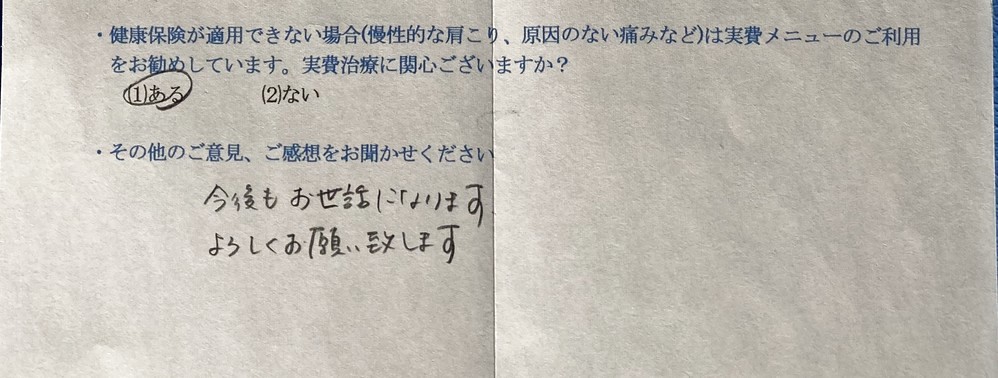 ・健康保険が適用できない場合(慢性的な肩こり、原因のない痛みなど)は実費メニューのご利用
をお勧めしています。実費治療に関心ございますか？
(1)ある　(2)ない
・その他のご意見、ご感想をお聞かせください
今後もお世話になります
よろしくお願い致します